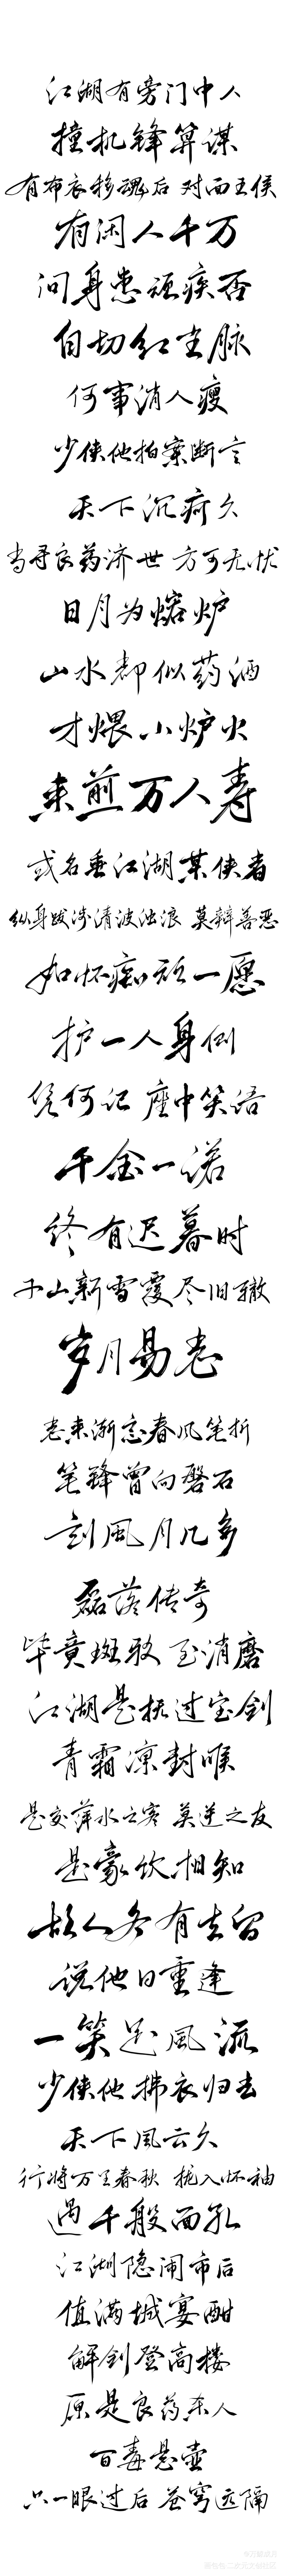 江湖有旁门中人
撞机锋算谋
有布衣移魂后 对面王侯
有闲人千万
问身患顽疾否
自切红尘脉
何事消人瘦
少侠他拍案断言
天下沉疴久
当寻良药济世 方可无忧
日月为熔炉
山水都似药酒
才煨小炉火
来煎万人寿
或名垂江湖某侠者
纵身跋涉清波浊浪 莫辩善恶
如怀痴顽一愿
护一人身侧
凭何记 座中笑语
千金一诺
终有迟暮时
千山新雪覆尽旧辙
岁月易老
老来渐忘春风笔折
笔锋曾向磐石
刻風月几多
磊落传奇
毕竟斑驳 至消磨
江湖是抚过宝剑
青霜凛封喉
是交萍水之客 莫逆之友
是豪饮相知
故人各有去留
说他日重逢
一笑足風流
少侠他拂衣归去
天下風云久
行将万里春秋 拢入怀袖
遇千般面孔
江湖隐闹市后
值满城宴酣
解剑登高楼
原是良药杀人
百毒悬壶
只一眼过后 苍穹远隔